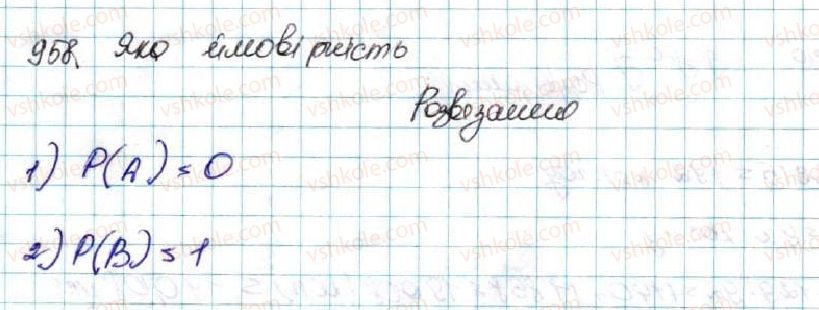 958. Яка ймовірність
Розв'язання
1) P(A) = 0
2) P(B) = 1